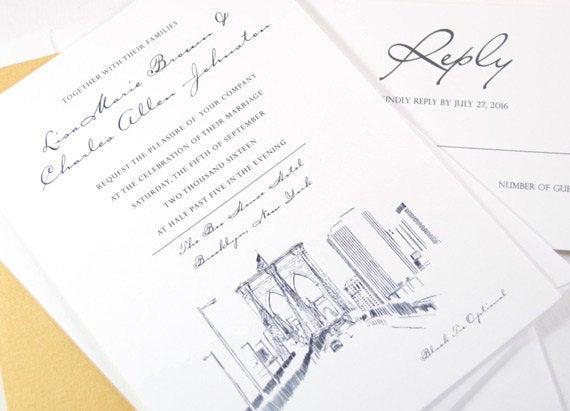 TOGETHER WITH THEIR FAMILIES
Lisa Marie Brown &
Charles Allen Johnston
REQUEST THE PLEASURE OF YOUR COMPANY
AT THE CELEBRATION OF THEIR MARRIAGE
SATURDAY, THE FIFTH OF SEPTEMBER
TWO THOUSAND SIXTEEN
AT HALF PAST FIVE IN THE EVENING
The Box House Hotel
Brooklyn, New York
Black Tie Optional
Reply
KINDLY REPLY BY JULY 27, 2016
NUMBER OF